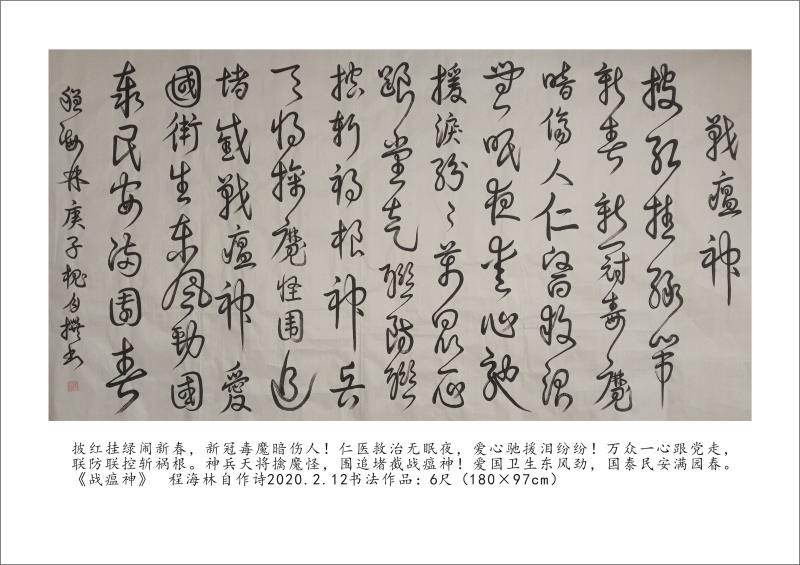 戰瘟神
披红挂绿闹
新春新冠毒魔
暗傷人仁醫救治
無眠夜爱心驰
援淚纷〻万眾一心
跟党走聯防聯
控斩祸根神兵
天将擒魔怪围追
堵截戰瘟神愛
國衛生东风勁國
泰民安满園春
程海林庚子槐月撰书
披红挂绿闹新春，新冠毒魔暗伤人！仁医救治无眠夜，爱心驰援泪纷纷！万众一心跟党走，
联防联控斩祸根。神兵天将擒魔怪，围追堵截战瘟神！爱国卫生东风劲，国泰民安满园春。
《战瘟神》 程海林自作诗2020.2.12书法作品：6尺（180×97cm）